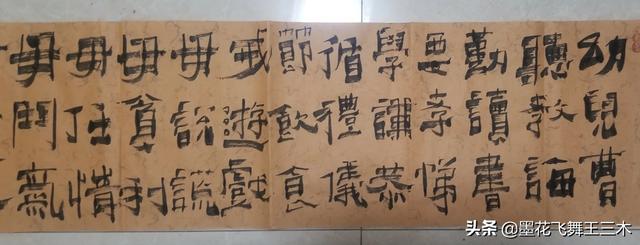 幼兒曹
聽教誨
勤讀書
要孝悌
學謙恭
循禮儀
節飲食
戒遊戲
毋說謊
毋貪利
毋任情
毋鬥氣
头条 @墨花飞舞王三木